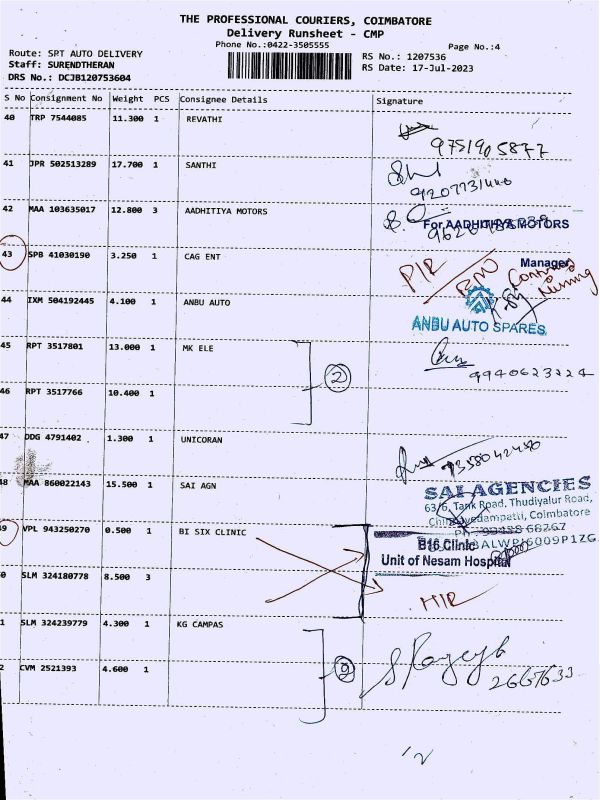 THE PROFESSIONAL COURIERS, COIMBATORE
Delivery Runsheet - CMP
Phone No.:0422-3505555
Page No.:4
Route: SPT AUTO DELIVERY
RS No.: 1207536
Staff: SURENDTHERAN
RS Date: 17-Jul-2023
DRS No.: DCJB120753604
S No Consignment No Weight PCS Consignee Details Signature
40 TRP 7544085 11.300 1 REVATHI
9751905877
41 JPR 502513289 17.700 1 SANTHI
42 MAA 103635017 12.800 3 AADHITIYA MOTORS
For AADHITHYA MOTORS
43 SPB 41030190 3.250 1 CAG ENT
Manager
44 IXM 504192445 4.100 1 ANBU AUTO
ANBU AUTO SPARES
45 RPT 3517801 13.000 1 MK ELE
9940623224
2
46 RPT 3517766 10.400 1
47 DDG 4791402 1.300 1 UNICORAN
9358042450
48 MAA 860022143 15.500 1 SAI AGN
SAI AGENCIES
63/6, Tank Road, Thudiyalur Road,
Chinnavedampatti, Coimbatore
49 VPL 943250770 0.500 1 BI SIX CLINIC
B16 Clinic
Unit of Nesam Hospital
0 SLM 324180778 8.500 3
1 SLM 324239779 4.300 1 KG CAMPAS
2 CVM 2521393 4.600 1
2
2667633
12